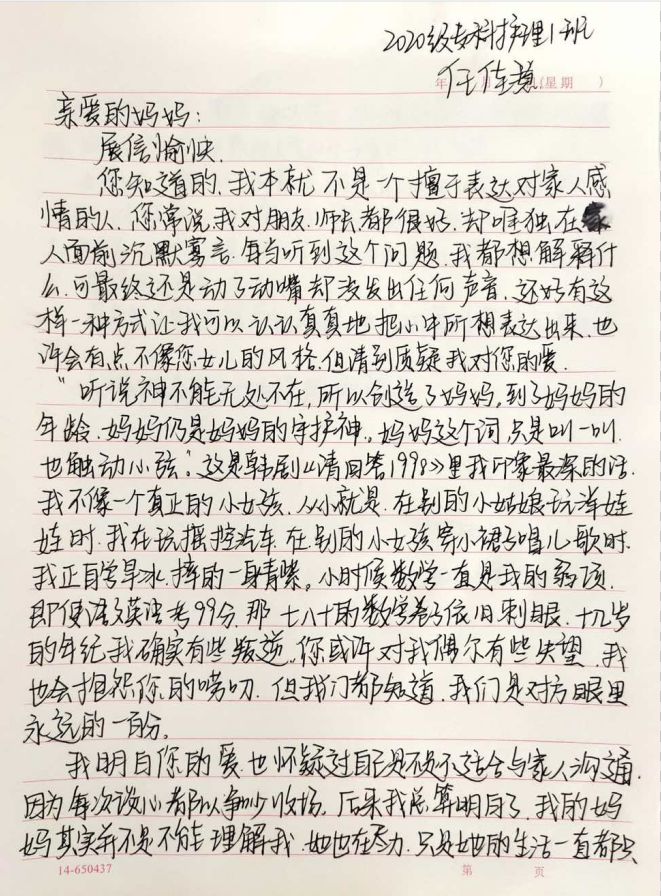 2020级专科护理1班
年 任佳慧 (星期 )
亲爱的妈妈:
展信愉快.
您知道的.我本就不是一个擅于表达对家人感
情的人.您常说.我对朋友.师长都很好.却唯独在家
人面前沉默寡言.每当听到这个问题.我都想解释什
么.可最终还是动了动嘴却没发出任何声音.还好有这
样一种方式让我可以认认真真地把心中所想表达出来.也
许会有点不像您女儿的风格.但请别质疑我对您的爱.
"听说神不能无处不在,所以创造了妈妈,到了妈妈的
年龄.妈妈仍是妈妈的守护神。妈妈这个词.只是叫一叫.
也触动心弦".这是韩剧《请回答1998》里我印象最深的话.
我不像一个真正的小女孩.从小就是.在别的小姑娘玩洋娃
娃时.我在玩摇控汽车.在别的小女孩穿小裙子唱儿歌时.
我正自学旱冰.摔的一身青紫。小时候数学一直是我的弱项.
即使语文英语考99分.那七八十的数学卷子依旧刺眼.十几岁
的年纪我确实有些叛逆.您或许对我偶尔有些失望.我
也会抱怨你的唠叨.但我们都知道.我们是对方眼里
永远的一百分。
我明白您的爱.也怀疑过自己是不是不适合与家人沟通.
因为每次谈心都以争吵收场.后来我总算明白了.我的妈
妈其实并不是不能理解我.她也在尽力.只是她的生活一直都只
14-650437 第 页